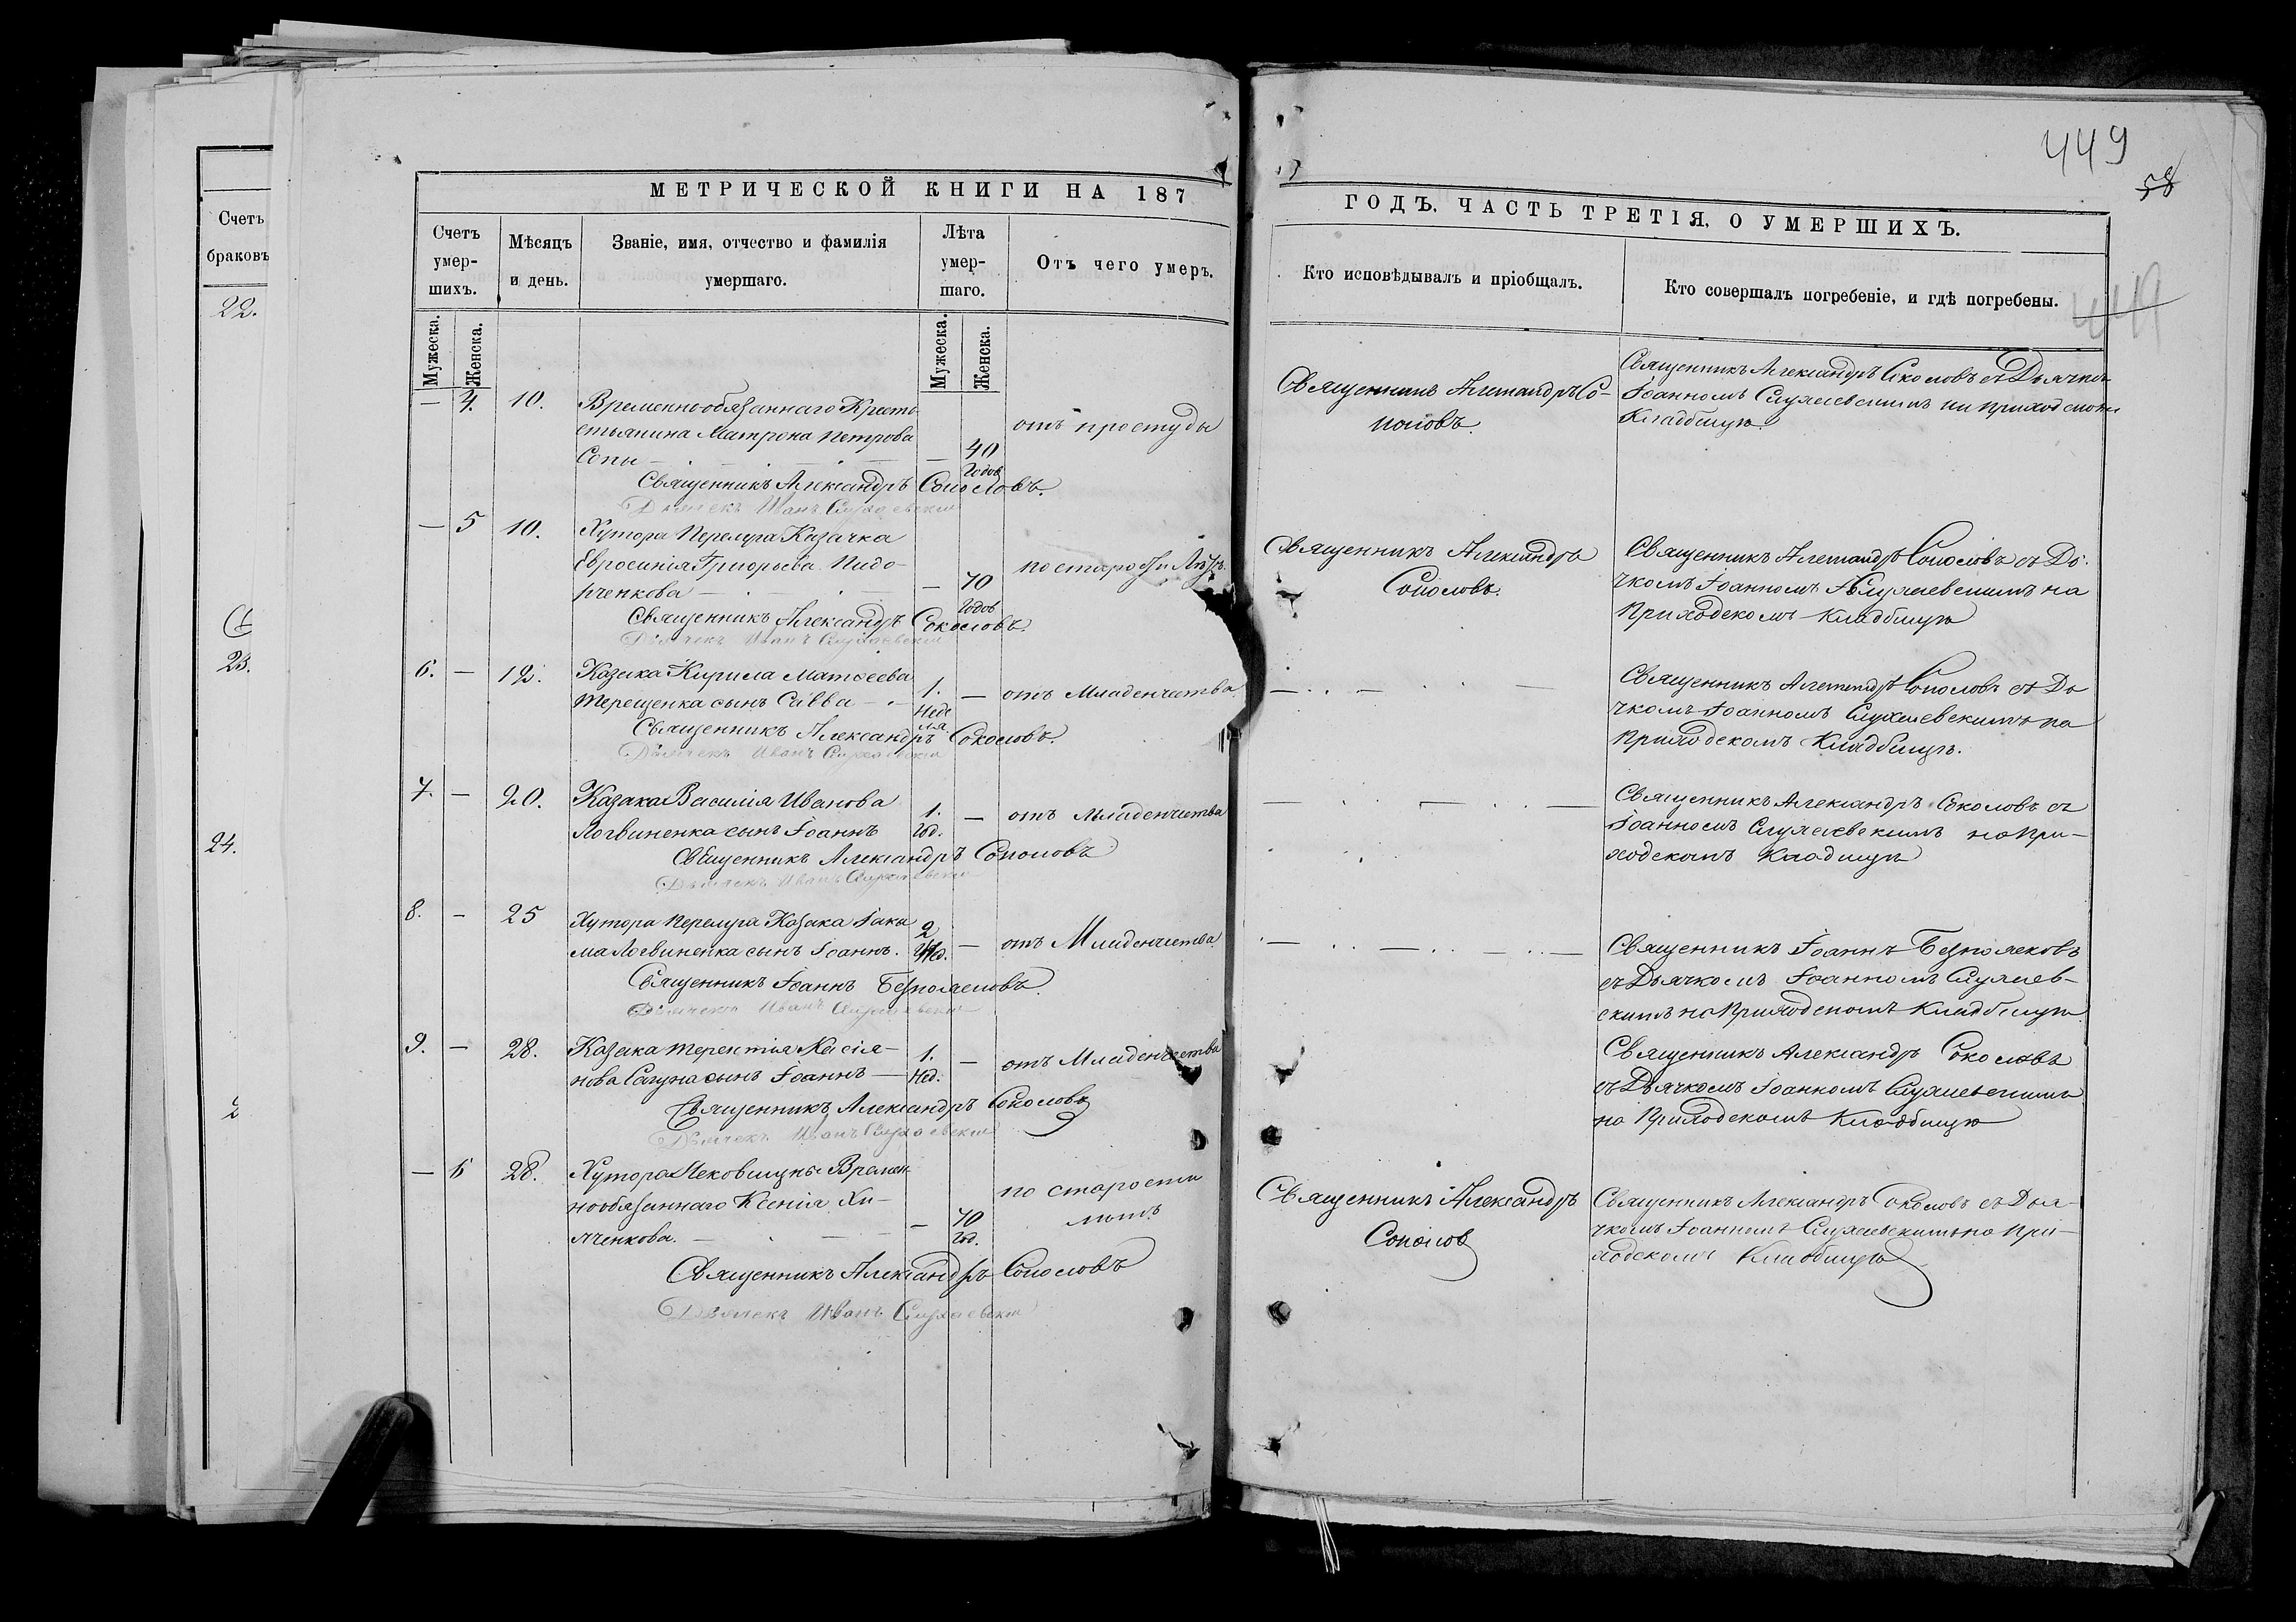 Счетъ
браковъ
22.
23.
24.
МЕТРИЧЕСКОЙ КНИГИ НА 187
Счетъ умер-шихъ.
Мѣсяцъ и день.
Званіе, имя, отчество и фамилія умершаго.
Лѣта умер-шаго.
Отъ чего умеръ.
Мужеска.
Женска.
Мужеска.
Женска.
— 4. 10. Временнообязаннаго Кресть
стьянина Матрона Петрова
Сопы — — — 40 Годов отъ простуды
Священникъ Александръ Соколовъ.
Дьячекъ Иванъ
— 5 10. Хутора Перелуга Казачка
Евросинія Григорьева Пидо-
рченкова — — — 70 Годов по старости Лѣтъ
Священникъ Александръ Соколовъ.
Дьячекъ Иванъ
6. — 12. Казака Кирила Матѳеева
Терещенка сынъ Савва — 1. Неделя — отъ Младенчества
Священникъ Александръ Соколовъ.
Дьячекъ Иванъ
7. — 20. Казака Василія Иванова
Логвиненка сынъ Іоаннъ 1. год. — отъ младенчества
Священникъ Александръ Соколовъ
Дьячекъ Иванъ
8. — 25 Хутора Перелуга Казака Іаки
ма Логвиненка сынъ Іоаннъ. 2 Нед. — отъ Младенчества
Священникъ Іоаннъ
Дьячекъ Иванъ
9. — 28. Казака Терентія Касія-
нова Сагуна сынъ Іоаннъ — 1. Нед. — отъ Младенчества
Священникъ Александръ Соколовъ
Дьячекъ Иванъ
— 6 28. Хутора Времен-
нообязаннаго Ксенія Хи-
яченкова. — — — 70 год. по старости
лѣтъ
Священникъ Александръ Соколовъ
Дьячекъ Иванъ
449
58
ГОДЪ. ЧАСТЬ ТРЕТІЯ, О УМЕРШИХЪ.
Кто исповѣдывалъ и пріобщалъ.
Кто совершалъ погребеніе, и гдѣ погребены.
Священникъ Александръ Со-
коловъ.
Священникъ Александръ Соколовъ съ Дьячком
Іоанномъ на приходском
Кладбищѣ.
Священникъ Александръ
Соколовъ.
Священникъ Александръ Соколовъ съ Дь
чкомъ Іоанномъ на
Приходскомъ Кладбищѣ
Священникъ Александръ Соколовъ съ Дь
чкомъ Іоанномъ на
Приходскомъ Кладбищѣ.
Священникъ Александръ Соколовъ съ
Іоанномъ на При-
ходскомъ Кладищѣ
Священникъ Іоаннъ
съ Дьячкомъ Іоанномъ
на Приходскомъ Кладбищѣ.
Священникъ Александръ Соколовъ
съ Дьячкомъ Іоанномъ
на Приходскомъ Кладбищѣ
Священникъ Александръ
Соколов
Священникъ Александръ Соколовъ съ Дья-
чкомъ Іоанномъ на При-
ходскомъ Кладбищѣ